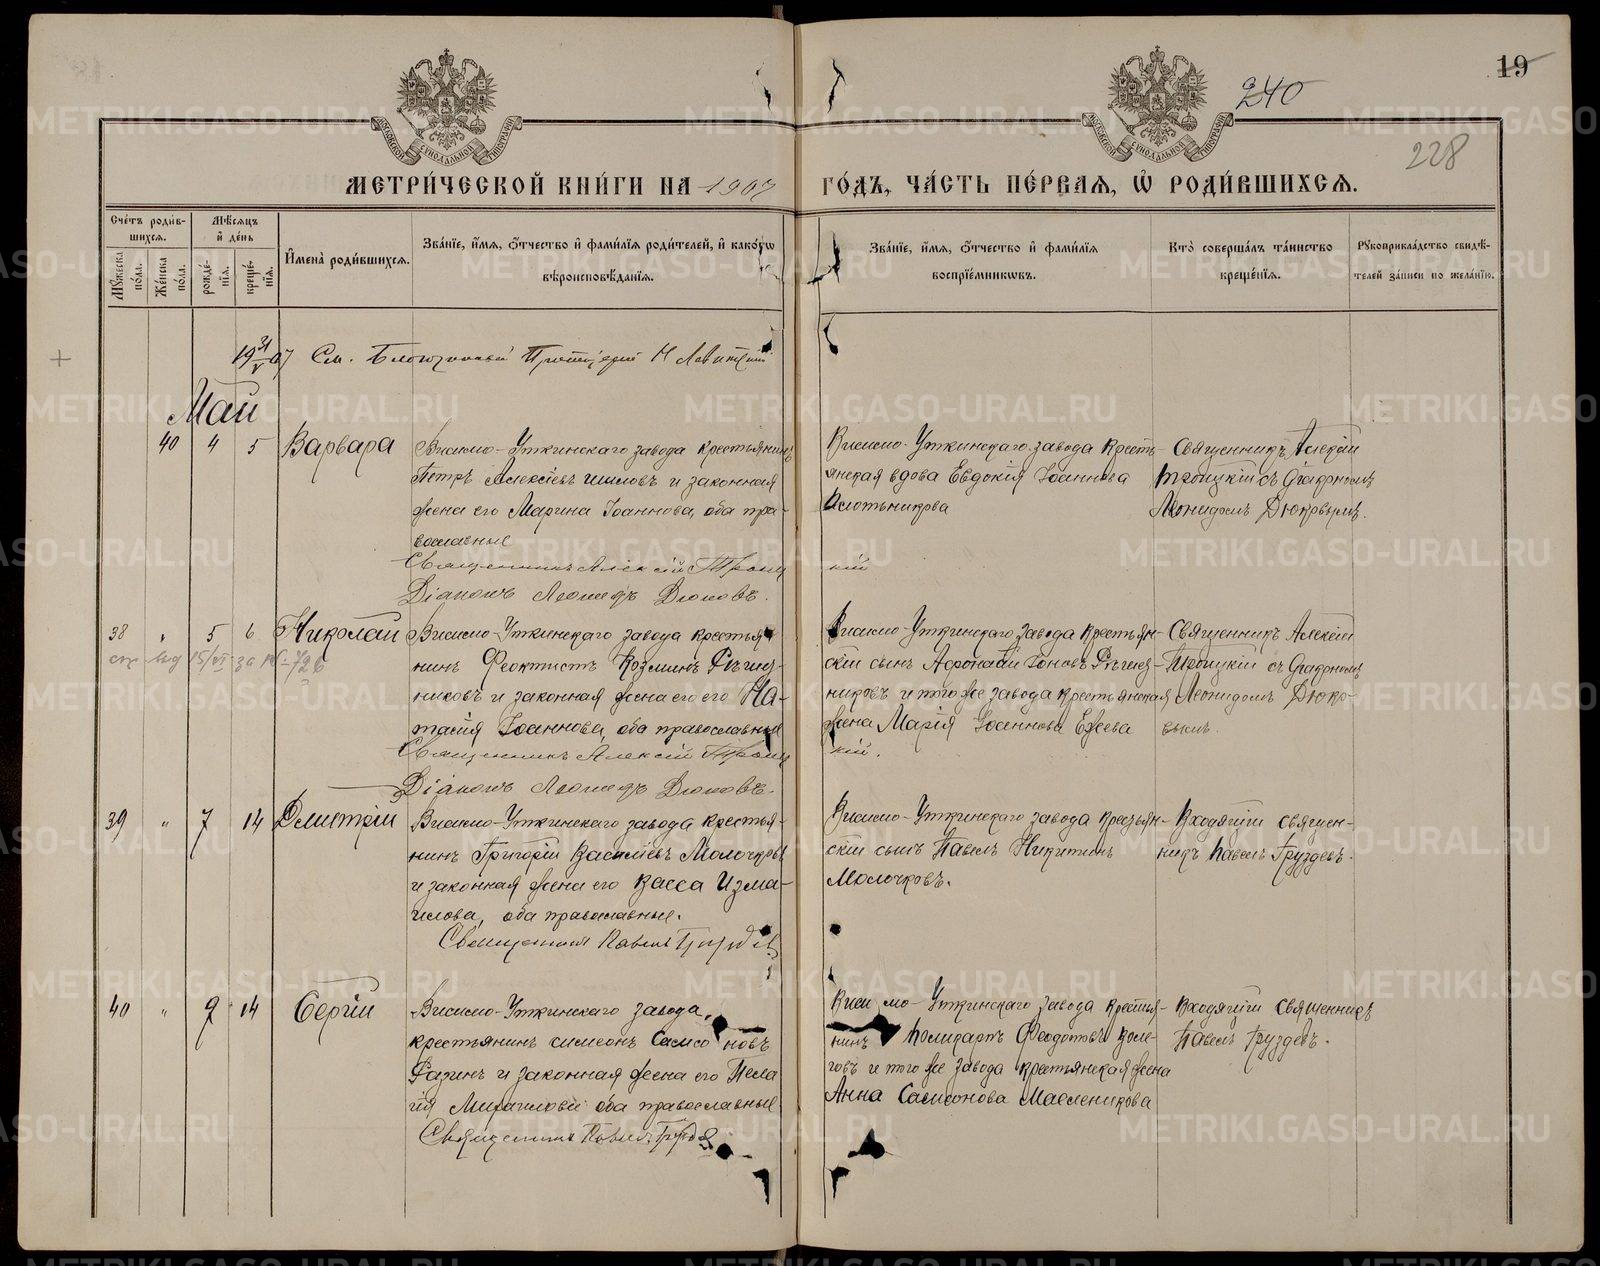 19
240
228
МЕТРИ́ЧЕСКОЙ КНИ́ГИ НА 1907 ГО́ДЪ, ЧА́СТЬ ПЕ́РВАЯ, Ѡ҆ РОДИ́ВШИХСЯ.
Сче́тъ роди́в-
шихся.
Мѣ́сяцъ
и҆ де́нь
И҆мена̀ роди́вшихся.
Зва́нїе, и҆́мя, ѻ҆́тчество и҆ фами́лїя роди́телей, и҆ како́гѡ
вѣроисповѣ́данїя.
Зва́нїе, и҆́мя, ѻ҆́тчество и҆ фами́лїя
воспрїе́мниковъ.
Кто̀ соверша́лъ та́инство
креще́нїя.
Рꙋкоприкла́дство свидѣ́-
телей за́писи по жела́нїю.
Мꙋ́жеска
по́ла.
Же́нска
по́ла.
рожде́-
нїя.
креще́-
нїя.
19 31/V 07 См. Благочинный Протоіерей Н Левитскій
Май
40 4 5 Варвара
Висимо-Уткинскаго завода крестьянинъ
Петръ Алексіевъ Шиловъ и законная
жена его Марина Іоаннова, оба пра-
вославные
Священникъ Алексій Троиц
кій
Діаконъ Леонидъ Дюковъ.
Висимо-Уткинскаго завода кресть-
янская вдова Евдокія Іоаннова
Плотникова
Священникъ Алексій
Троицкій съ Діакономъ
Леонидомъ Дюковымъ.
38 " 5 6 Николай
15/VI за № 726
Висимо-Уткинскаго завода крестья-
нинъ Феоктистъ Козминъ
никовъ и законная жена его его На-
талія Іоаннова, оба православные
Священникъ Алексій Троиц
кій.
Діаконъ Леонидъ Дюковъ.
Висимо-Уткинскаго завода крестьян-
скій сынъ Афонасій Іоновъ
никовъ и того же завода крестьянская
жена Марія Іоаннова
Священникъ Алексій
Троицкій съ Діакономъ
Леонидомъ Дюко-
вымъ.
39 " 7 14 Димитрій
Висимо-Уткинскаго завода крестья-
нинъ Григорій Василіевъ Молочковъ
и законная жена его Васса Изма-
илова, оба православные.
Священникъ Павелъ Груздев
Висимо-Уткинскаго завода крестьян-
скій сынъ Павелъ Никитинъ
Молочковъ.
Входящій священ-
никъ Павелъ Груздевъ.
40 " 9 14 Сергій
Висимо-Уткинскаго завода,
крестьянинъ Симеонъ Самсоновъ
и законная жена его Пела
гія оба православные
Священникъ Павелъ Груздев
Висимо-Уткинскаго завода крестья-
нинъ Поликарпъ Феодотовъ
говъ и того же завода крестьянская жена
Анна Самсонова Масленикова
Входящій Священникъ
Павелъ Груздевъ.
METRIKI.GASO-URAL.RU